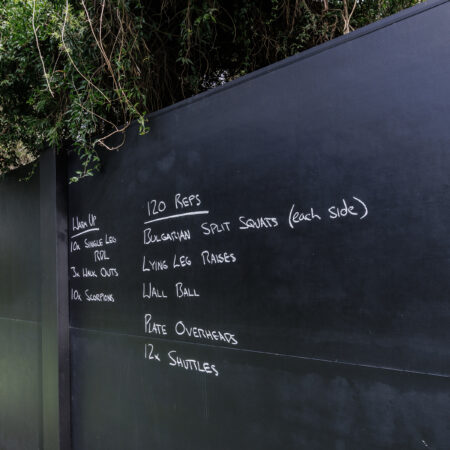 WARM UP
10x SINGLE LEG
RDL
3x WALK OUTS
10x SCORPIONS
120 REPS
BULGARIAN SPLIT SQUATS (each side)
LYING LEG RAISES
WALL BALL
PLATE OVERHEADS
12x SHUTTLES